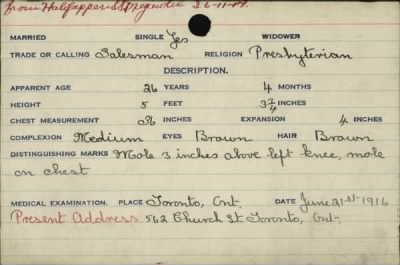 from Halifax per S.S. 26-11-17.
MARRIED SINGLE Yes WIDOWER
TRADE OR CALLING Salesman RELIGION Presbyterian
DESCRIPTION.
APPARENT AGE 26 YEARS 4 MONTHS
HEIGHT 5 FEET 3 3/4 INCHES
CHEST MEASUREMENT 36 INCHES EXPANSION 4 INCHES
COMPLEXION Medium EYES Brown HAIR Brown
DISTINGUISHING MARKS Mole 3 inches above left knee, mole
on chest
MEDICAL EXAMINATION. PLACE Toronto, Ont. DATE June 21st 1916
Present Address 562 Church St. Toronto, Ont.